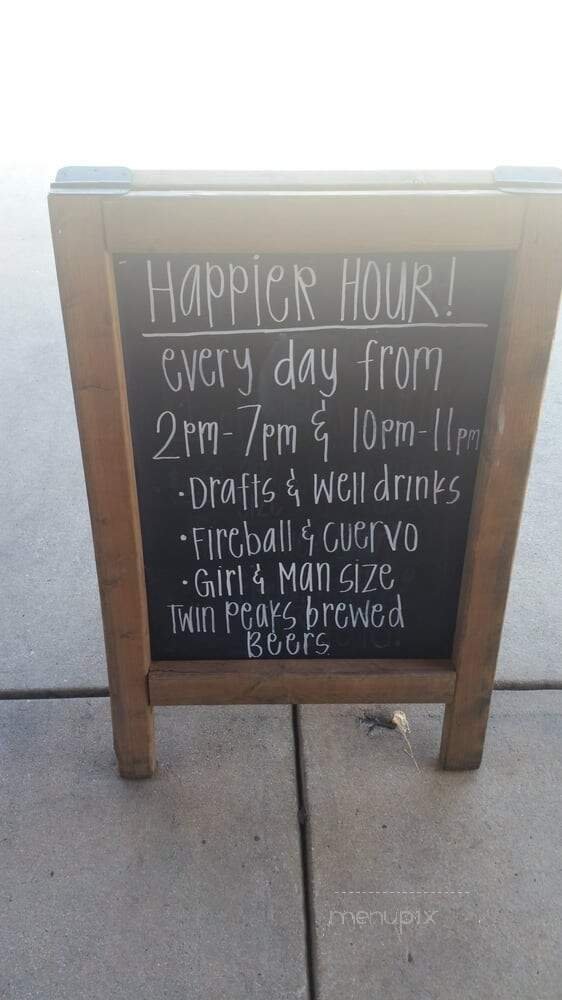 Happier Hour!
every day from
2pm-7pm & 10pm-11pm
• Drafts & Well drinks
• Fireball & Cuervo
• Girl & Man Size
Twin Peaks brewed
Beers
menupix